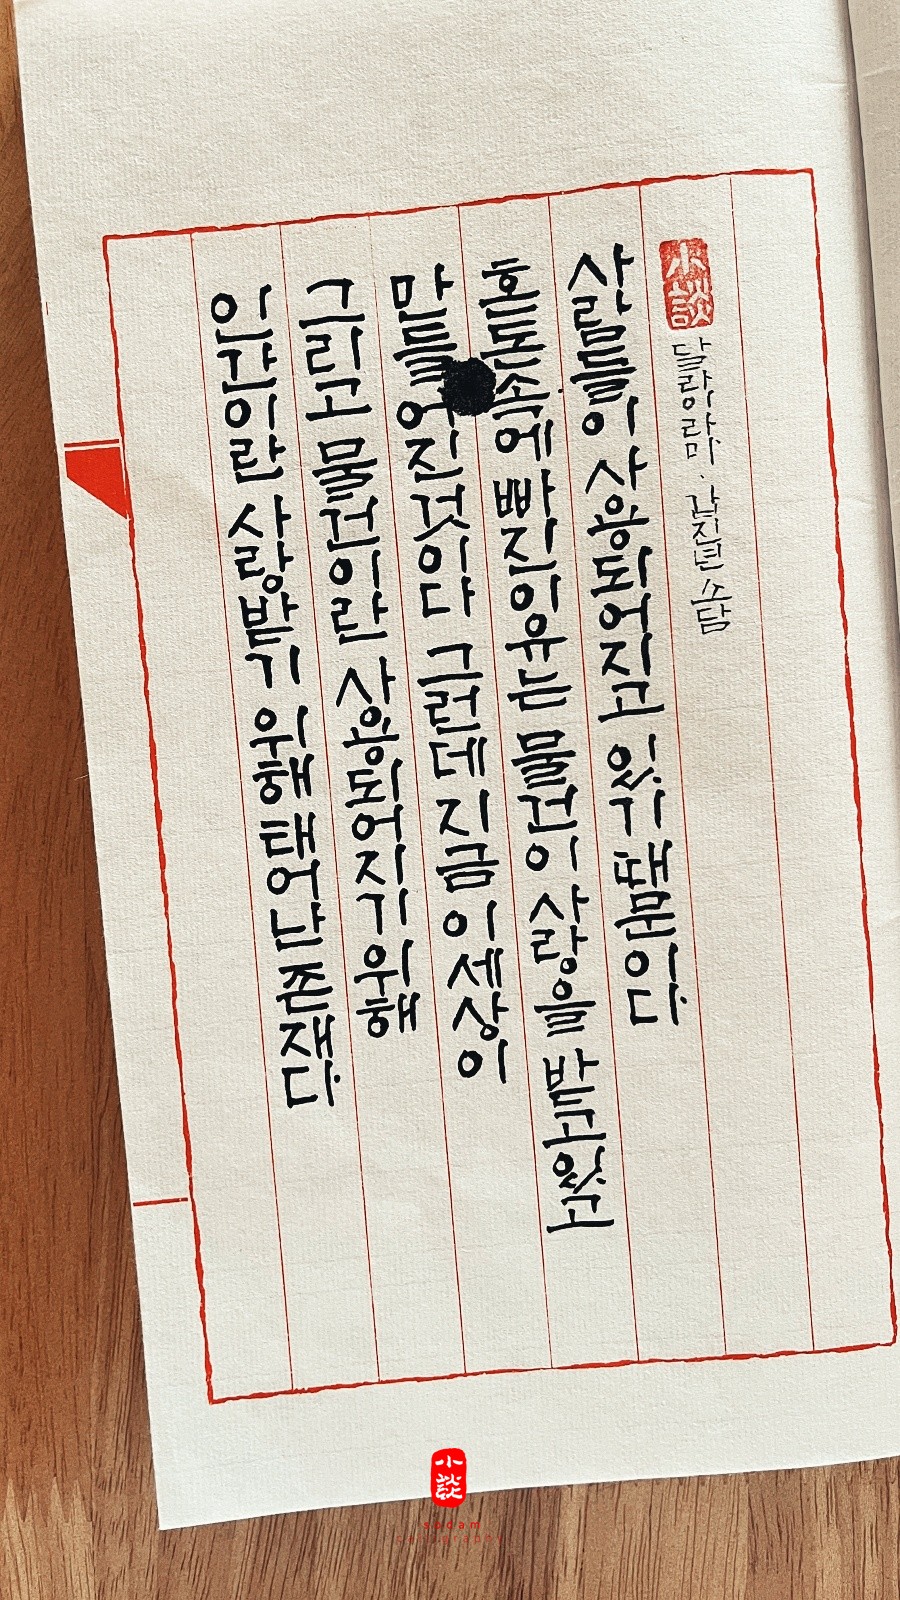 인간이란 사랑받기 위해 태어난 존재다.
그리고 물건이란 사용되어지기 위해
만들어진 것이다 그런데 지금 이 세상이
혼돈 속에 빠진 이유는 물건이 사랑을 받고있고
사람들이 사용되어지고 있기 때문이다.
小談 달라이라마. 갑진년 소담
小談
sodam
calligraphy